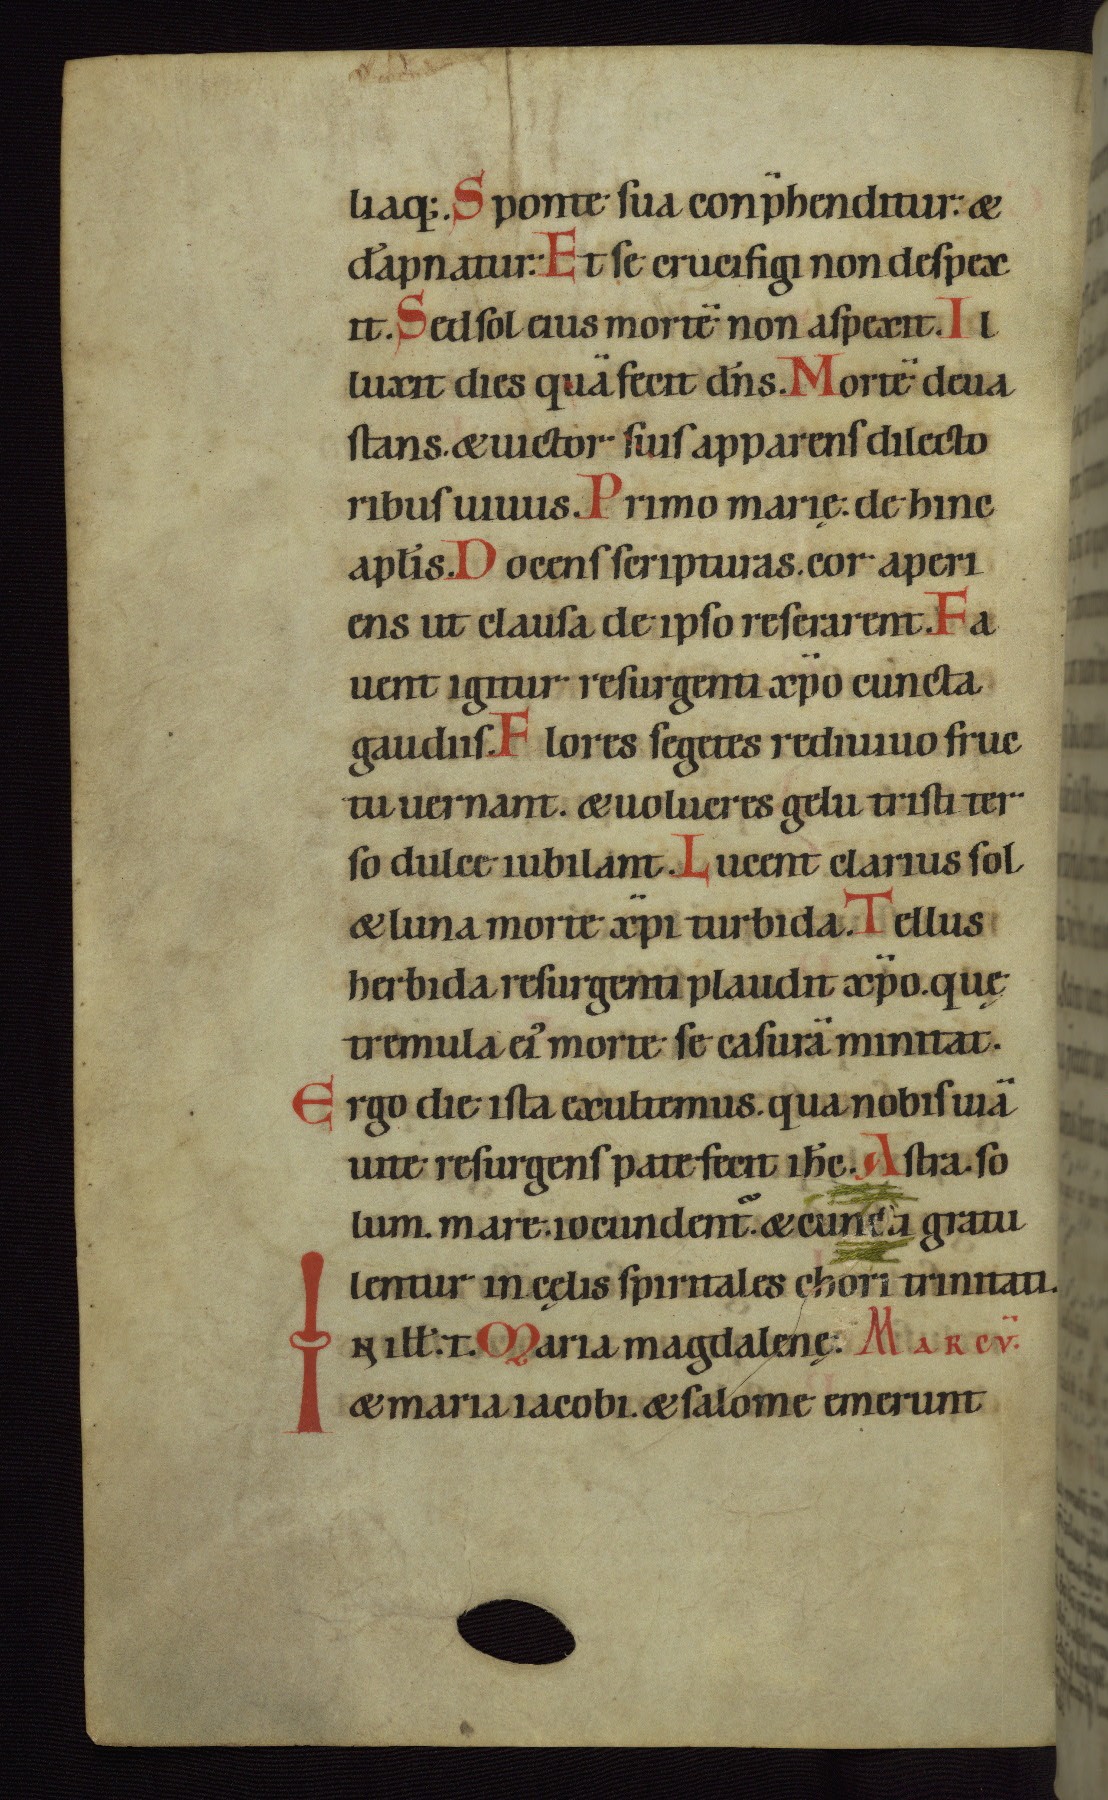 liaq;. Sponte sua conp̈henditur: &
da᷒pnatur: Et se crucifigi non despex
it. Sed sol eius morte̅ non aspexit. Il
luxit dies qua̅ fecit dn̅s. Morte̅ deua
stans. & uictor suis apparens dilecto
ribus uiuus. Primo marię: de hinc
apl̅is. Docens scripturas. cor aperi
ens ut clausa de ipso reserarent. Fa
uent igitur resurgenti xp̅o cuncta
gaudiis. Flores segetes rediuiuo fruc
tu uernant. & uolucres gelu tristi ter
so dulce iubilant. Lucent clarius sol
& luna morte xp̅i turbida. Tellus
herbida resurgenti plaudit xp̅o. quę
tremula ei᷒ morte se casura̅ minitat.
Ergo die ista exultemus. qua nobis uia̅
uite resurgens patefecit ih̅c. Astra. so
lum. mare. iocundent᷑. & cuncta gratu
lentur in cęlis spiritales chori trinitati.
IN ill̅: t. Maria magdalenę: MARCV̅.
& maria iacobi. & salome emerunt